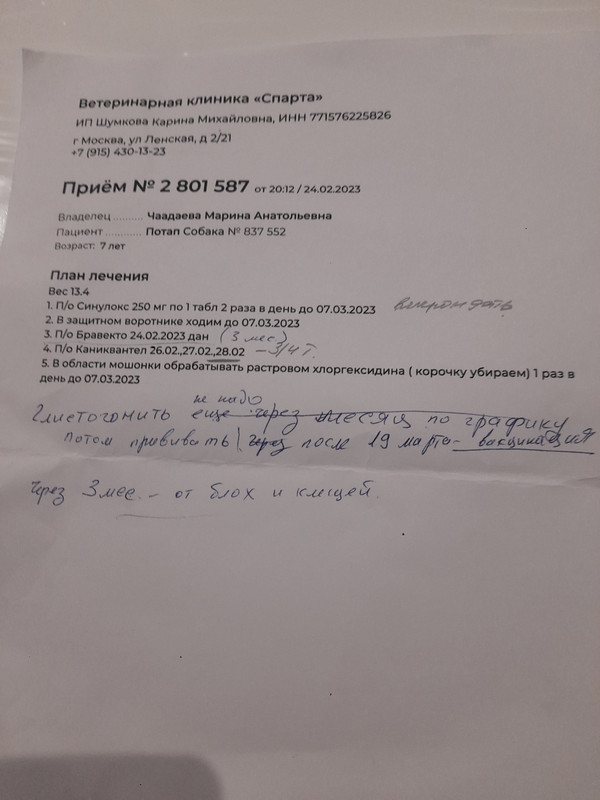 Ветеринарная клиника «Спарта»
ИП Шумкова Карина Михайловна, ИНН 771576225826
г Москва, ул Ленская, д 2/21
+7 (915) 430-13-23
Приём № 2 801 587 от 20:12 / 24.02.2023
Владелец .......... Чаадаева Марина Анатольевна
Пациент ............ Потап Собака № 837 552
Возраст: 7 лет
План лечения
Вес 13.4
1. П/о Синулокс 250 мг по 1 табл 2 раза в день до 07.03.2023
2. В защитном воротнике ходим до 07.03.2023
3. П/о Бравекто 24.02.2023 дан (3 мес)
4. П/о Каниквантел 26.02.,27.02.,28.02 – 3/4 т.
5. В области мошонки обрабатывать растровом хлоргексидина ( корочку убираем) 1 раз в
день до 07.03.2023
не надо
Глистогонить еще через месяц по графику
потом прививать через после 19 марта - вакцинация
Через 3 мес. – от блох и клещей.